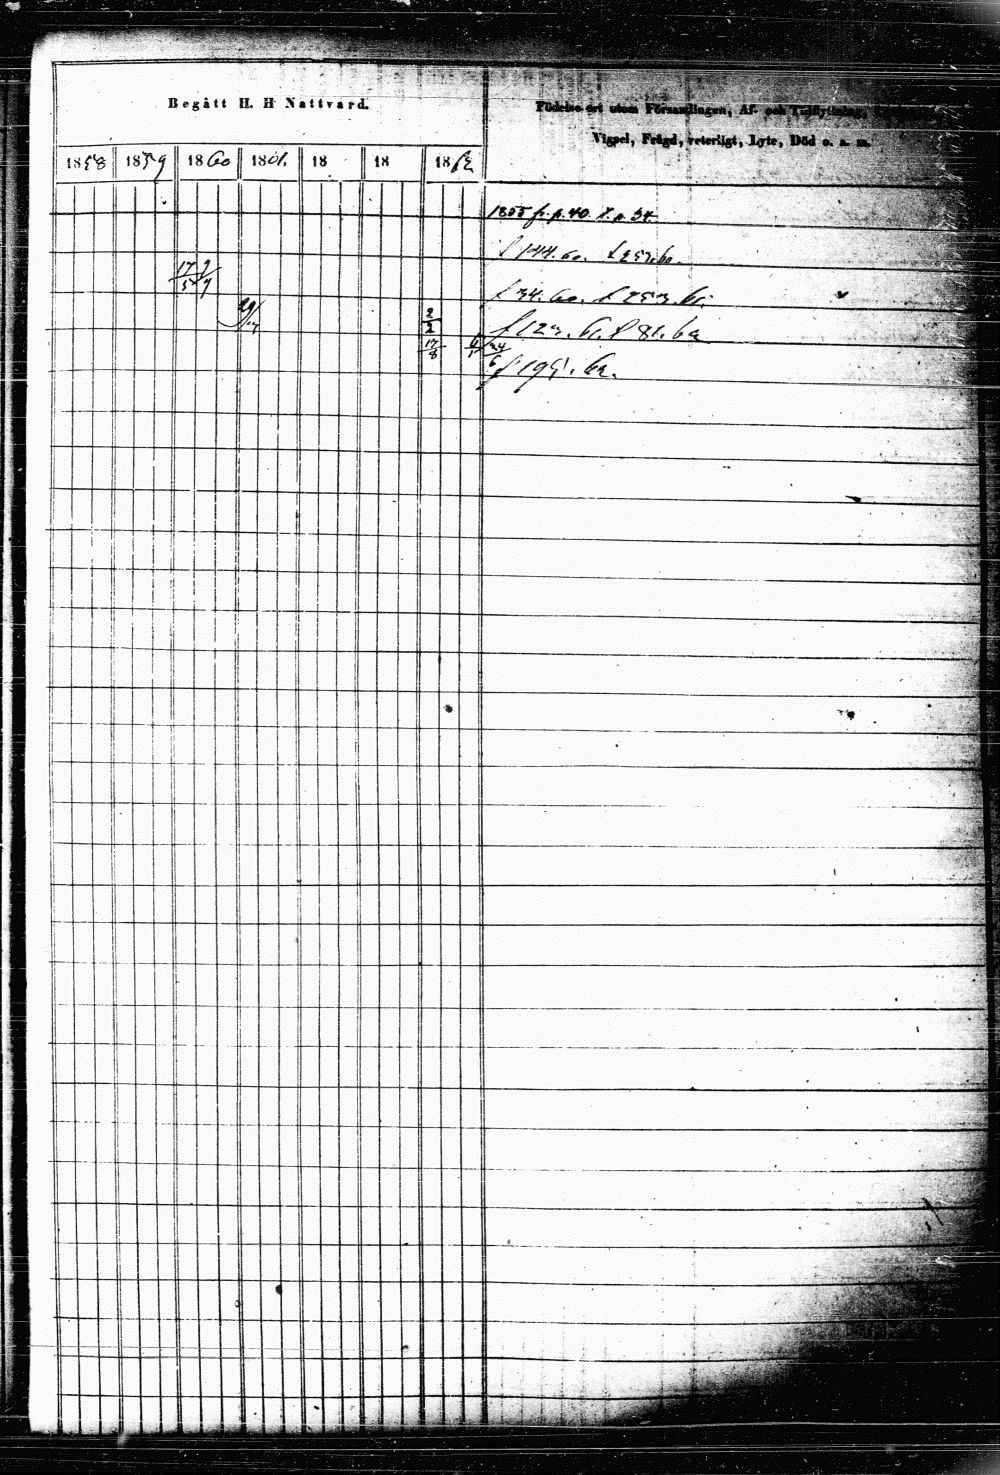 Begått H. H Nattvard.
Födelse-ort utom Församlingen, Af- och Tillflyttning,
Vigsel, Frägd, veterligt, Lyte, Död o. s. m.
1858 1859 1860 1861. 18 18 1862
1855 fr. p. 40. t. p. 34.
f 144. 60. t 257. 60.
17/5 9/9
f 34. 60. t 253. 61.
29/3
2/2
f 123. 61. t 81. 62
17/8 6/1 24/6
f 195. 62.